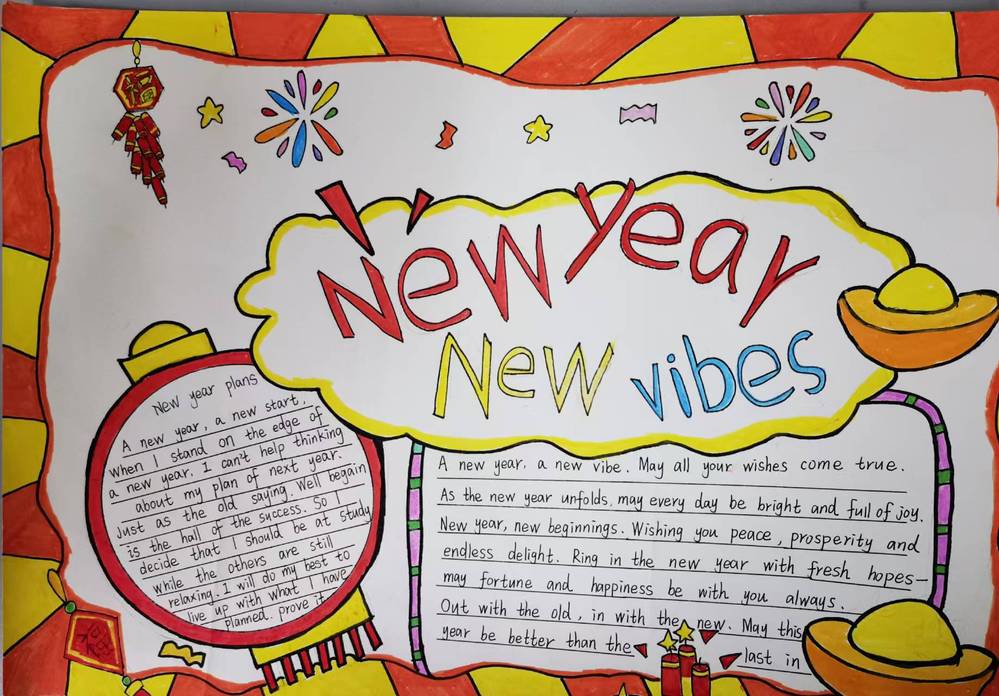 New year
New vibes
New year plans
A new year, a new start,
when I stand on the edge of
a new year. I can't help thinking
about my plan of next year.
Just as the old saying. Well begain
is the hall of the success. So I
decide that I should be at study
while the others are still
relaxing. I will do my best to
live up with what I have
planned. prove it
A new year. a new vibe. May all your wishes come true.
As the new year unfolds, may every day be bright and full of joy.
New year, new beginnings. Wishing you peace, prosperity and
endless delight. Ring in the new year with fresh hopes—
may fortune and happiness be with you always.
Out with the old, in with the new. May this
year be better than the last in